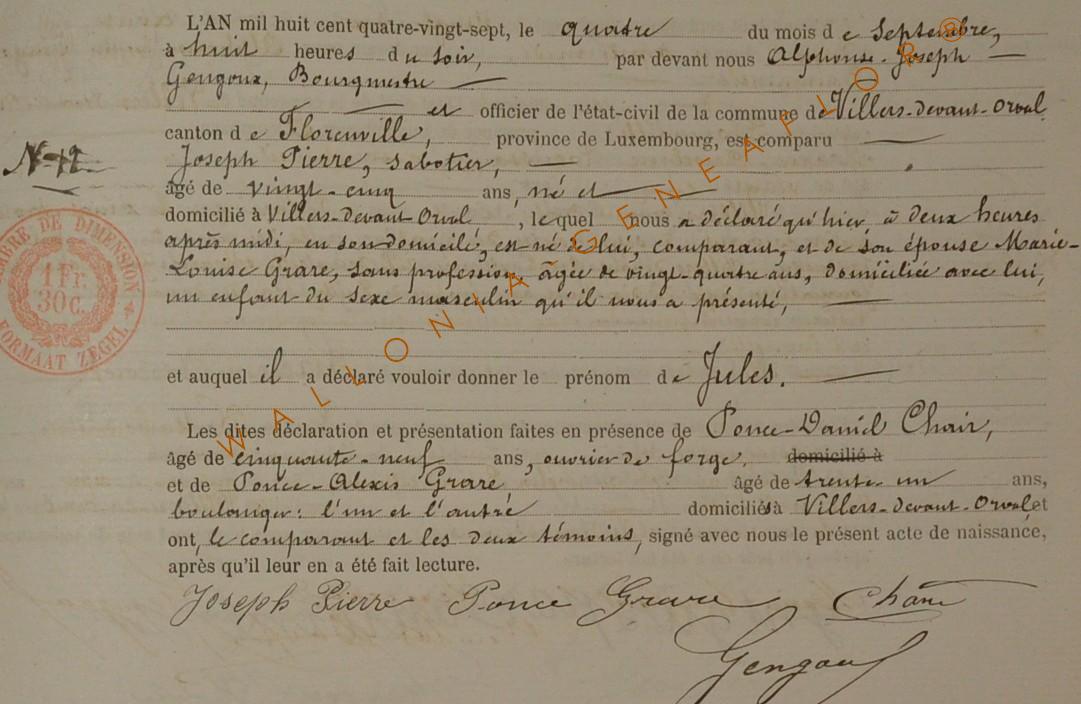 L'AN mil huit cent quatre-vingt-sept, le quatre du mois d e Septembre,
à huit heures du soir, par devant nous Alphonse-Joseph —
Gengoux, Bourgmestre —
— et officier de l'état-civil de la commune de Villers-devant-Orval
canton d e Florenville, province de Luxembourg, est comparu —
N-12
Joseph Pierre, sabotier, —
âgé de vingt-cinq ans, né et —
domicilié à Villers-devant-Orval, le quel nous a déclaré qu'hier, à deux heures
après midi, en son domicile, est né de lui, comparant, et de son épouse Marie-
Louise Grare, sans profession, âgée de vingt-quatre ans, domiciliée avec lui,
un enfant du sexe masculin qu'il nous a présenté, —
et auquel il a déclaré vouloir donner le prénom de Jules. —
Les dites déclaration et présentation faites en présence de Ponce-Daniel Chair,
âgé de cinquante-neuf ans, ouvrier de forge, domicilié à
et de Ponce-Alexis Grare âgé de trente-un ans,
boulanger: l'un et l'autre domiciliés à Villers-devant-Orval et
ont, le comparant et les deux témoins, signé avec nous le présent acte de naissance,
après qu'il leur en a été fait lecture.
Joseph Pierre Ponce Grare
Gengoux
TIMBRE DE DIMENSION
1 Fr.
30c.
FORMAAT ZEGEL
WALLONIA GENEAFLOR®